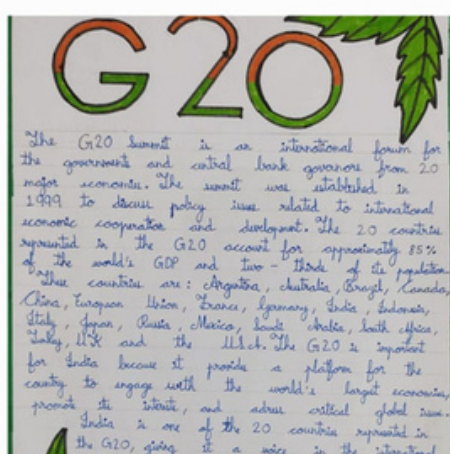 G20
The G20 Summit is an international forum for
the governments and central bank governors from 20
major economies. The summit was established in
1999 to discuss policy issues related to international
economic cooperation and development. The 20 countries
represented in the G20 account for approximately 85%
of the world's GDP and two-thirds of its population.
These countries are: Argentina, Australia, Brazil, Canada,
China, European Union, France, Germany, India, Indonesia,
Italy, Japan, Russia, Mexico, Saudi Arabia, South Africa,
Turkey, U.K and the U.S.A. The G20 is important
for India because it provide a platform for the
country to engage with the world's largest economies,
promote its interests, and adress critical global issues.
India is one of the 20 countries represented in
the G20, giving it a voice in the international